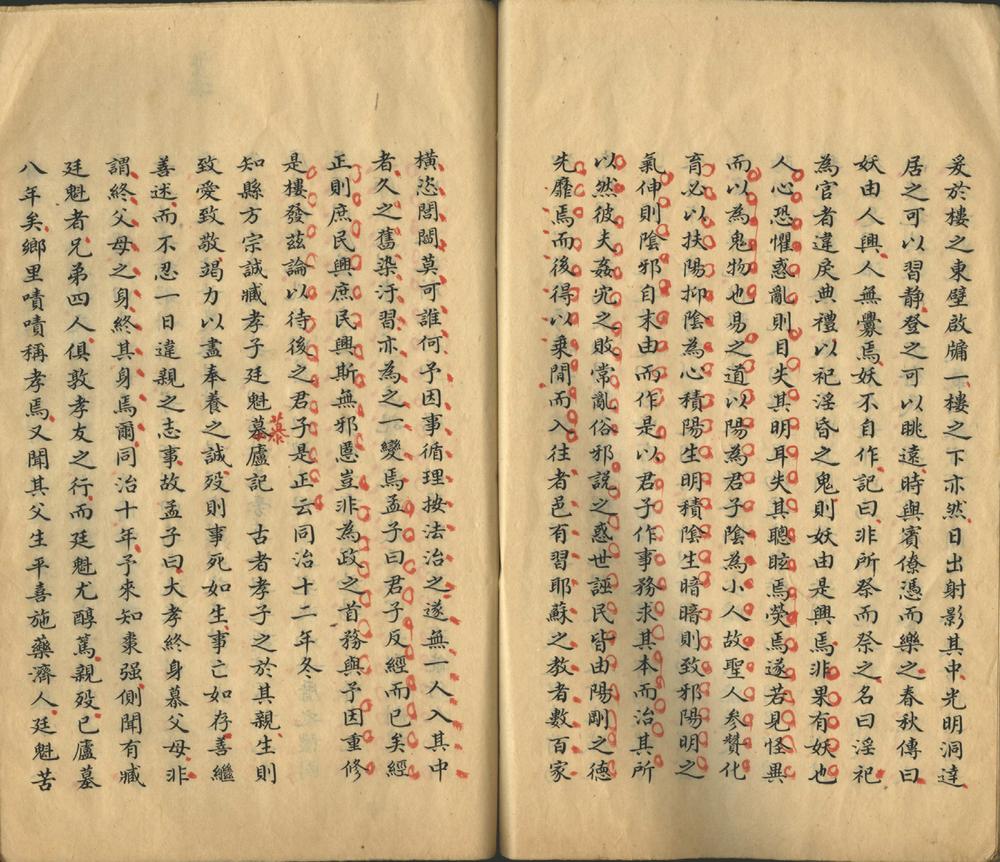 爰於樓之東壁啟牖一樓之下亦然日出射影其中光明洞達
居之可以習静登之可以眺遠時與賓僚憑而樂之春秋傳曰
妖由人興人無釁焉妖不自作記曰非所祭而祭之名曰淫祀
為官者違戾典禮以祀淫昏之鬼則妖由是興焉非果有妖也
人心恐懼惑亂則目失其明耳失其聰眩焉熒焉遂若見怪異
而以為鬼物也易之道以陽為君子陰為小人故聖人參贊化
育必以扶陽抑陰為心積陽生明積陰生暗暗則致邪陽明之
氣伸則陰邪自末由而作是以君子作事務求其本而治其所
以然彼夫姦宄之敗常亂俗邪説之惑世誣民皆由陽剛之德
先靡焉而後得以乘間而入往者邑有習耶蘇之教者數百家
橫恣閭閻莫可誰何予因事循理按法治之遂無一人入其中
者久之舊染汙習亦為之一變焉孟子曰君子反經而已矣經
正則庶民興庶民興斯無邪慝豈非為政之首務與予因重修
是樓發茲論以待後之君子是正云同治十二年冬
知縣方宗誠臧孝子廷魁墓廬記 古者孝子之於其親生則
致愛致敬竭力以盡奉養之誠歿則事死如生事亡如存善繼
善述而不忍一日違親之志事故孟子曰大孝終身慕父母非
謂終父母之身終其身焉爾同治十年予來知棗强側聞有臧
廷魁者兄弟四人俱敦孝友之行而廷魁尤醇篤親歿已廬墓
八年矣鄉里嘖嘖稱孝焉又聞其父生平喜施藥濟人廷魁苦